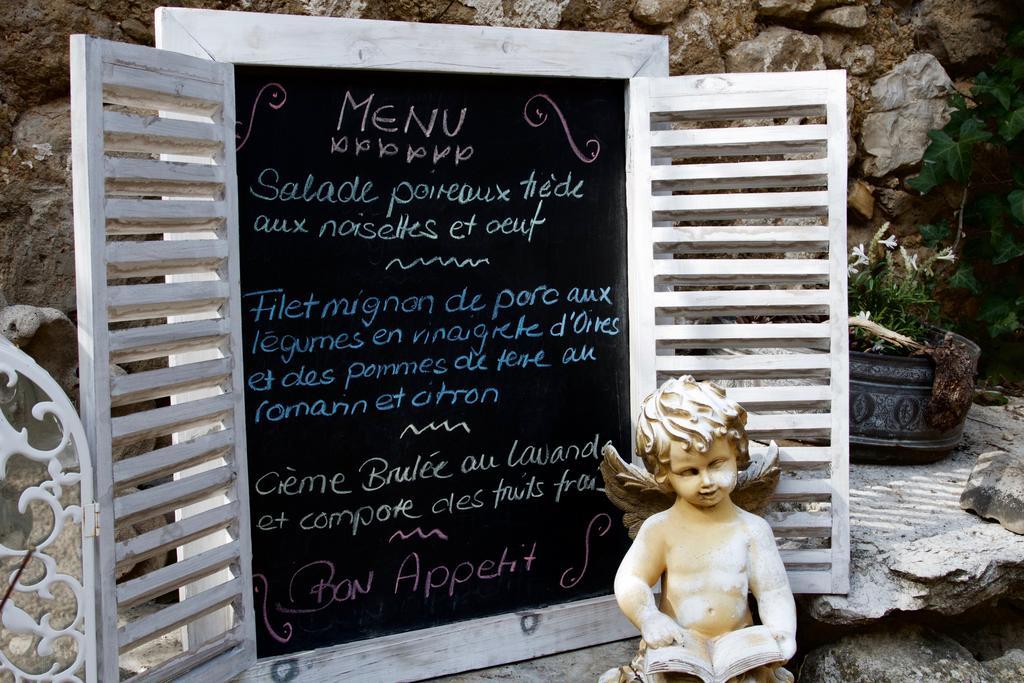 MENU
Salade poireaux tiède
aux noisettes et oeuf
Filet mignon de porc aux
légumes en vinaigrette d'Oives
et des pommes de terre au
romarin et citron
Crème Brulée au lavande
et compote des fruits
Bon Appetit